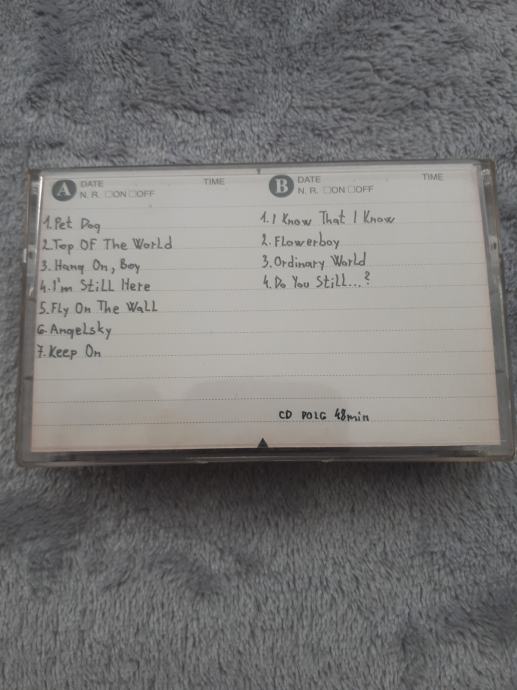 A DATE TIME
N. R. □ON □OFF
1. Pet Dog
2. Top Of The World
3. Hang On, Boy
4. I'm Still Here
5. Fly On The Wall
6. Angelsky
7. Keep On
B DATE TIME
N. R. □ON □OFF
1. I Know That I Know
2. Flowerboy
3. Ordinary World
4. Do You Still...?
CD POLG 48min